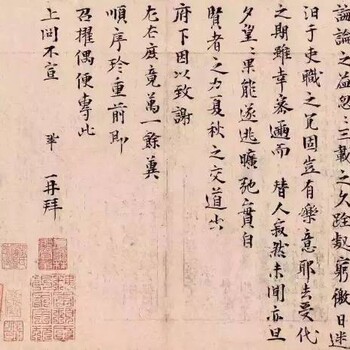 誨論之益忽〻三載之久跧處窮徼日迷
汨于吏職之冗固豈有樂意耶去受代
之期雖幸密邇而 替人寂然未聞亦旦
夕望〻果能遂逃曠弛實自
賢者之力夏秋之交道出
府下因以致謝
左右庶竟萬一餘冀
順序珍重前即
召擢偶便專此
上問不宣 鞏 再拜